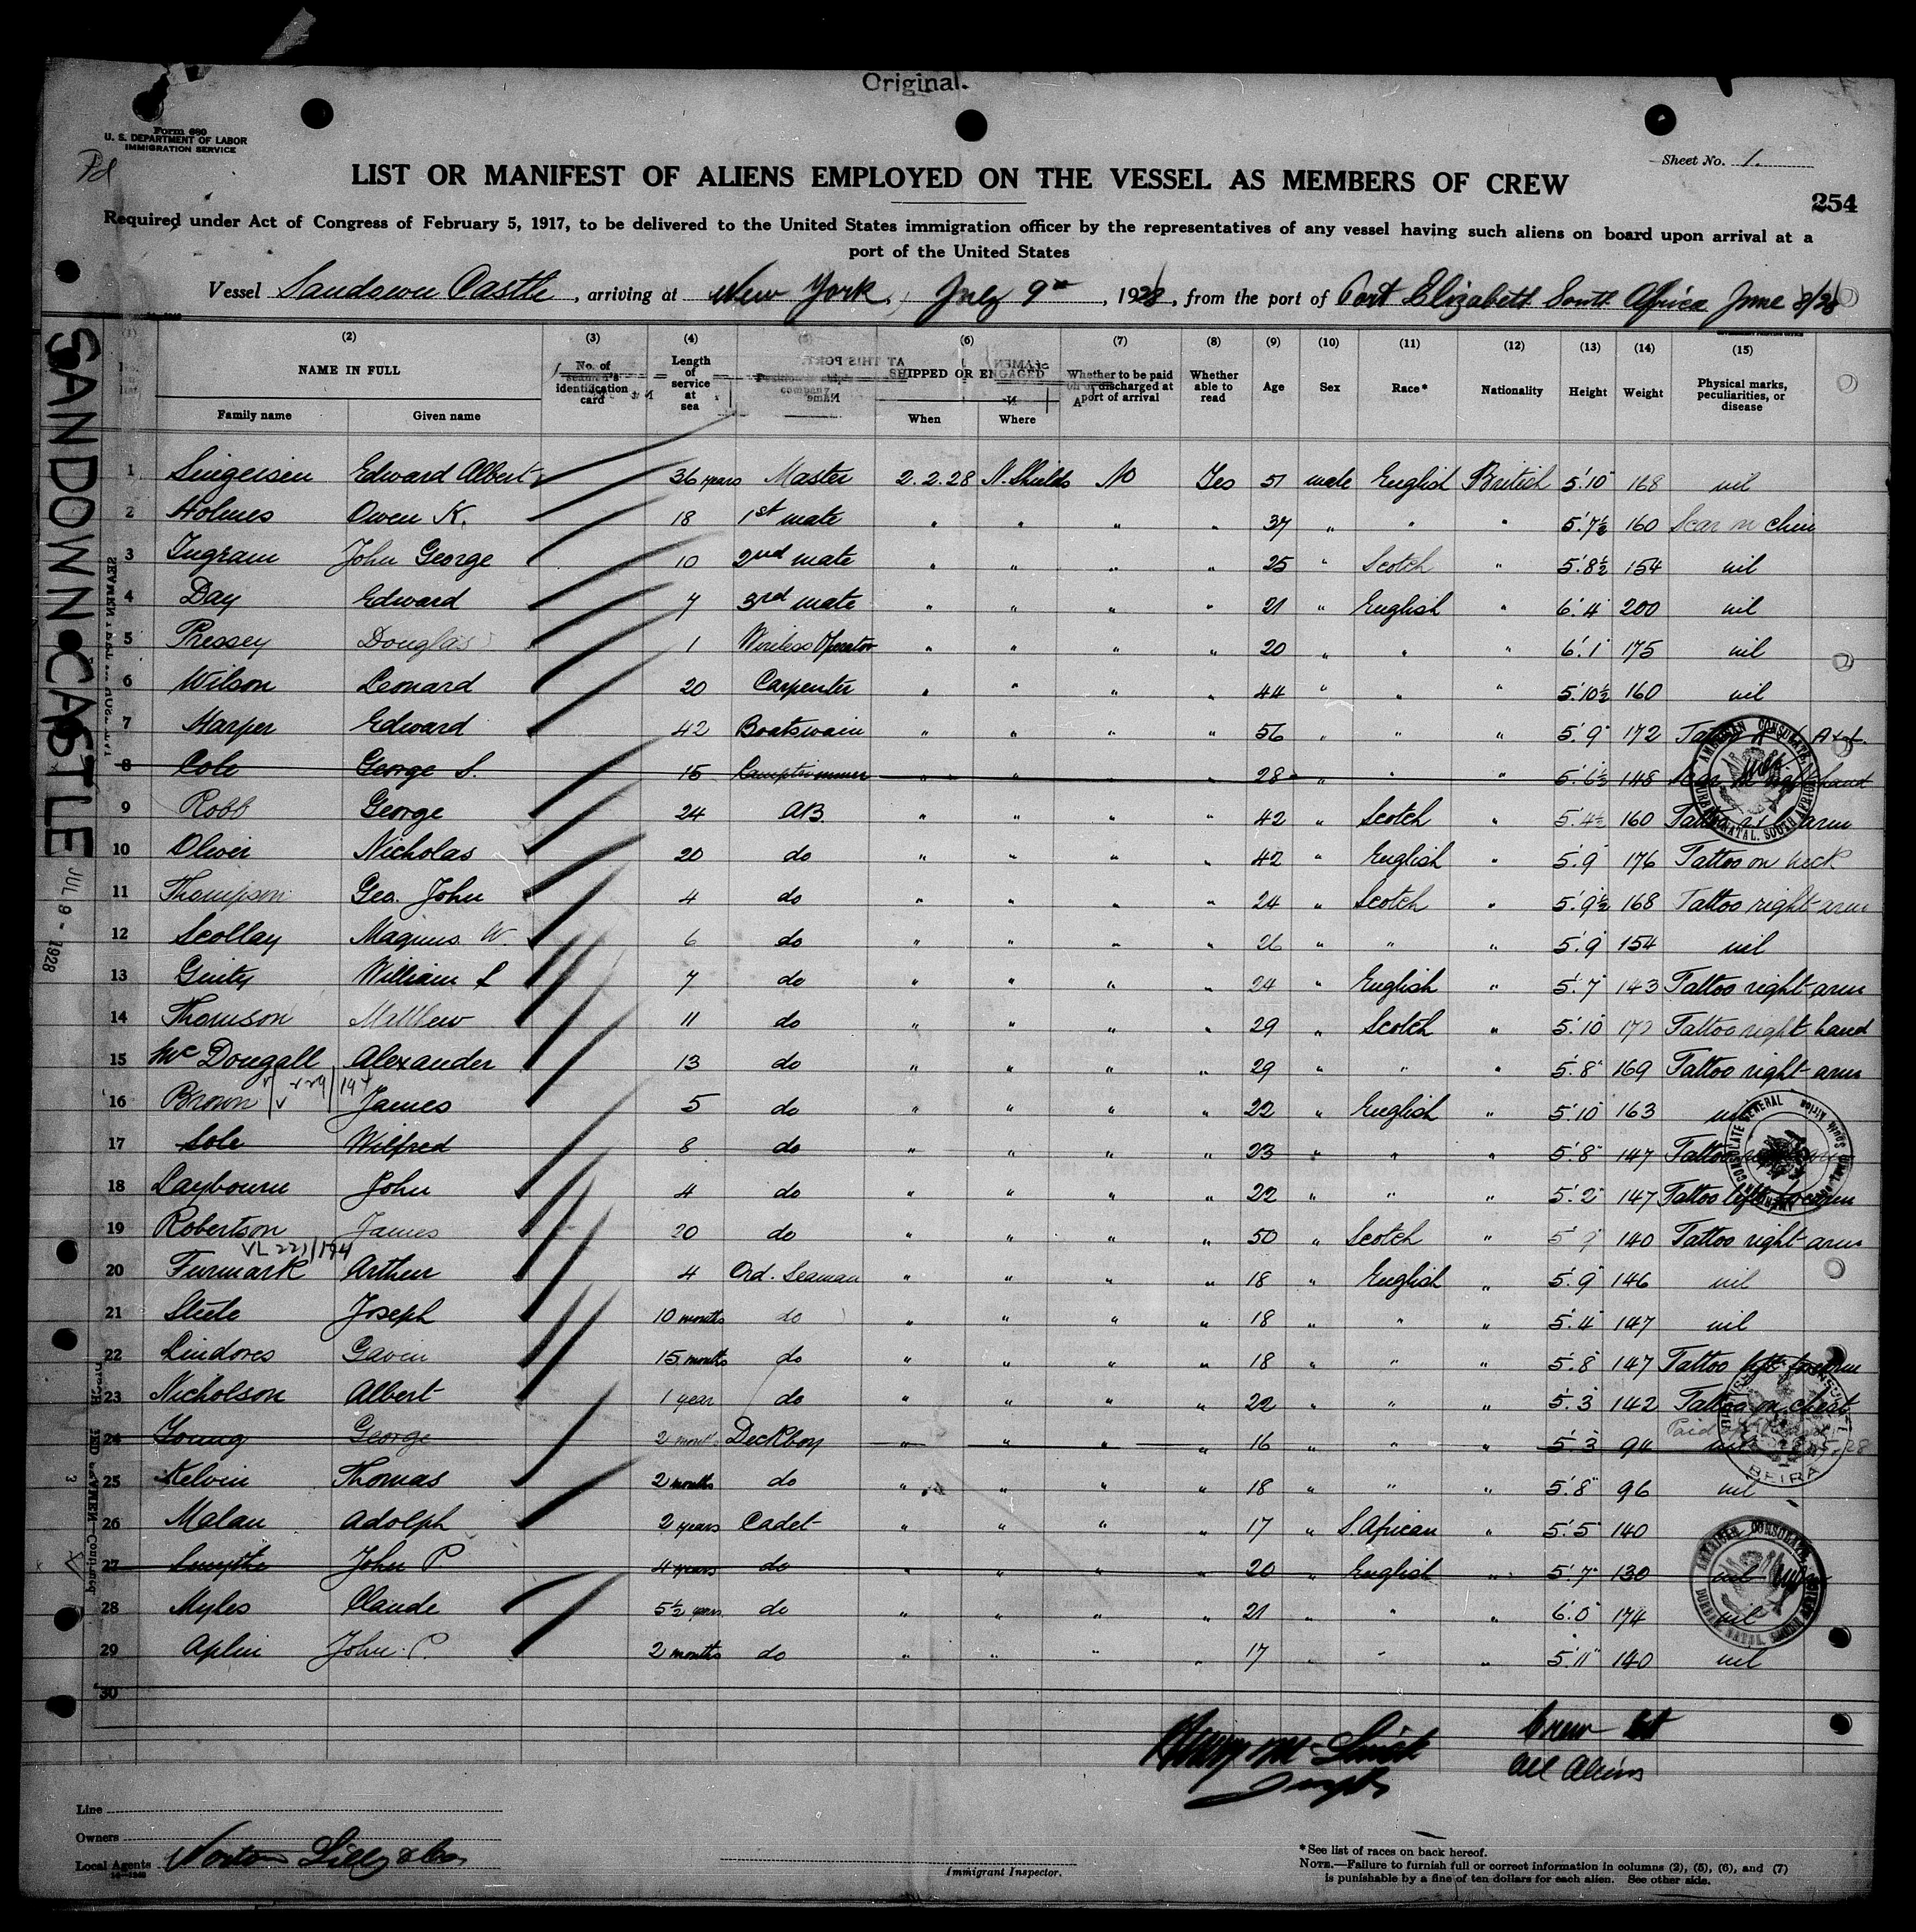 Original.
Form 680
U. S. DEPARTMENT OF LABOR
IMMIGRATION SERVICE
Pd
Sheet No. 1.
LIST OR MANIFEST OF ALIENS EMPLOYED ON THE VESSEL AS MEMBERS OF CREW
254
Required under Act of Congress of February 5, 1917, to be delivered to the United States immigration officer by the representatives of any vessel having such aliens on board upon arrival at a
port of the United States
Vessel Sandown Castle, arriving at New York, July 9th, 1928, from the port of Port Elizabeth South Africa June 8/28
SANDOWN CASTLE JUL 9 - 1928
(1) (2) (3) (4) (5) (6) (7) (8) (9) (10) (11) (12) (13) (14) (15)
NAME IN FULL No. of seaman's identification card Length of service at sea Position in ship's company SHIPPED OR ENGAGED Whether to be paid off or discharged at port of arrival Whether able to read Age Sex Race* Nationality Height Weight Physical marks, peculiarities, or disease
Family name Given name When Where
1 Singeisen Edward Albert 36 years Master 2.2.28 N. Shields No Yes 51 male English British 5'.10" 168 nil
2 Holmes Owen K. 18 1st mate " " " " 37 " " " 5'.7½ 160 Scar on chin
3 Ingram John George 10 2nd mate " " " " 25 " Scotch " 5'.8½ 154 nil
4 Day Edward 7 3rd mate " " " " 21 " English " 6'.4" 200 nil
5 Pressey Douglas 1 Wireless Operator " " " " 20 " " " 6'.1" 175 nil
6 Wilson Leonard 20 Carpenter " " " " 44 " " " 5'.10½ 160 nil
7 Harper Edward 42 Boatswain " " " " 56 " " " 5'.9" 172 Tattoo
8 Cole George S. 15 Lamptrimmer " " " " 28 " " " 5'.6½ 148 Scar on right hand
9 Robb George 24 AB. " " " " 42 " Scotch " 5'.4½ 160 Tattoo arm
10 Oliver Nicholas 20 do " " " " 42 " English " 5'.9" 176 Tattoo on neck
11 Thompson Geo. John 4 do " " " " 24 " Scotch " 5'.9½ 168 Tattoo right arm
12 Scollay Magnus W. 6 do " " " " 26 " " " 5'.9" 154 nil
13 Ginty William S 7 do " " " " 24 " English " 5'.7" 143 Tattoo right arm
14 Thomson Matthew 11 do " " " " 29 " Scotch " 5'.10" Tattoo right hand
15 McDougall Alexander 13 do " " " " 29 " " " 5'.8" 169 Tattoo right arm
16 Brown James 5 do " " " " 22 " English " 5'.10" 163 nil
17 Sole Wilfred 8 do " " " " 23 " " " 5'.8" 147 Tattoo
18 Laybourn John 4 do " " " " 22 " " " 5'.2" 147 Tattoo left forearm
19 Robertson James 20 do " " " " 50 " Scotch " 5'.9" 140 Tattoo right arm
20 Furmark Arthur 4 Ord. Seaman " " " " 18 " English " 5'.9" 146 nil
21 Steele Joseph 10 months do " " " " 18 " " " 5'.4" 147 nil
22 Lindores Gavin 15 months do " " " " 18 " " " 5'.8" 147 Tattoo left forearm
23 Nicholson Albert 1 year do " " " " 22 " " " 5'.3" 142 Tattoo on chest
24 Young George 2 months Deckboy " " " " 16 " " " 5'.3" 94 nil
25 Kelvin Thomas 2 months do " " " " 18 " " " 5'.8" 96 nil
26 Malan Adolph 2 years Cadet " " " " 17 " S. African " 5'.5" 140
27 Smythe John P 4 years do " " " " 20 " English " 5'.7" 130 nil
28 Myles Claude 5½ years do " " " " 21 " " " 6'.0" 174 nil
29 Aplin John P. 2 months do " " " " 17 " " " 5'.11" 140 nil
30
Crew
All Aliens
Line
Owners
Local Agents Norton Lilly & Co.
Immigrant Inspector.
*See list of races on back hereof.
NOTE.—Failure to furnish full or correct information in columns (2), (5), (6), and (7)
is punishable by a fine of ten dollars for each alien. See other side.